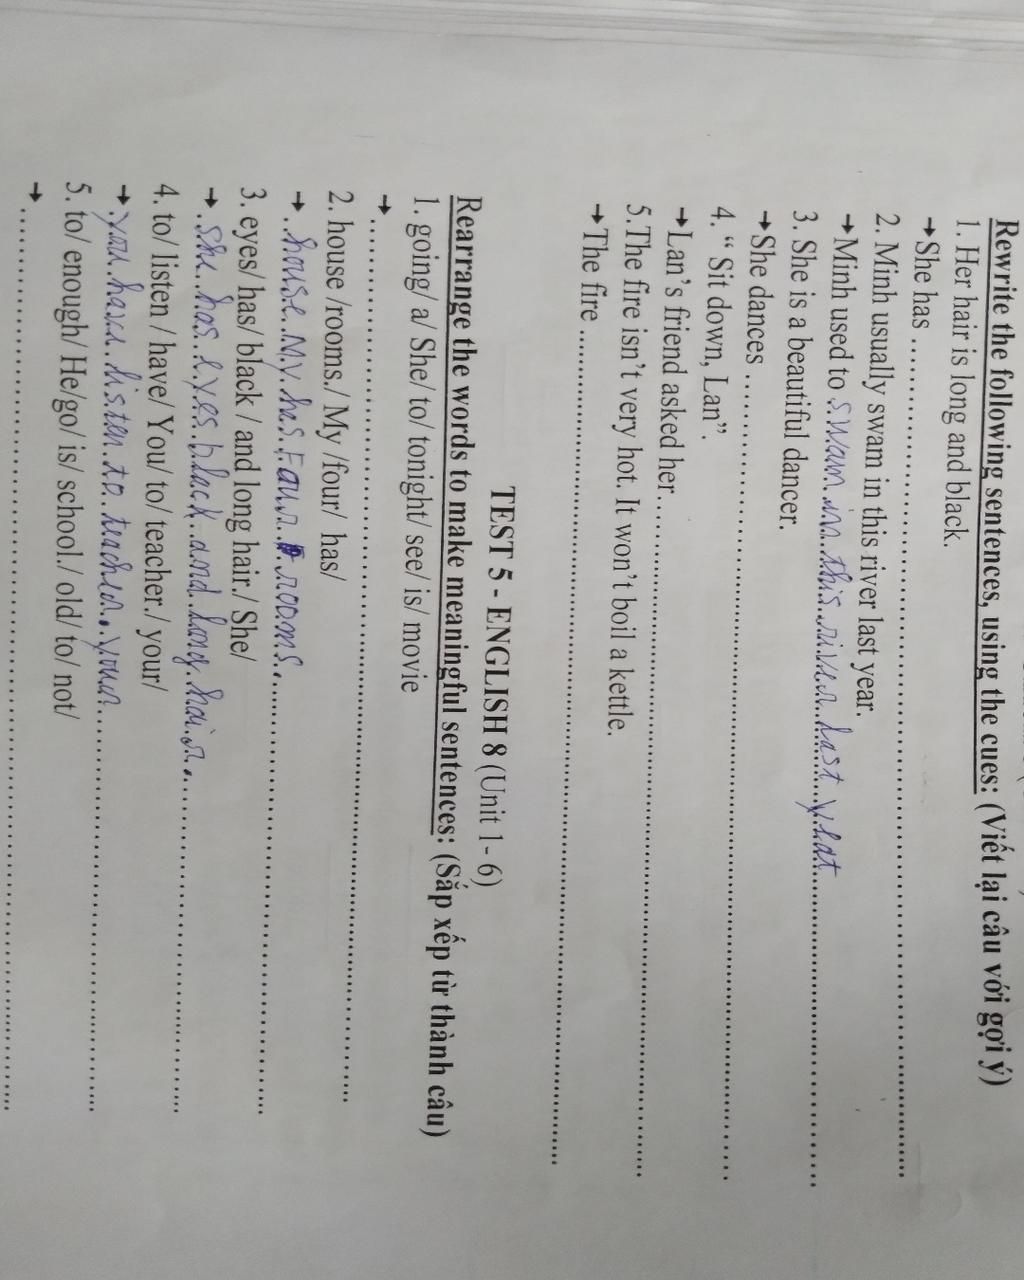 Rewrite the following sentences, using the cues: (Viết lại câu với gợi ý)
1. Her hair is long and black.
→She has ........................................
2. Minh usually swam in this river last year.
→Minh used to swam in this river last yeat
3. She is a beautiful dancer.
→She dances ........................................
4. “ Sit down, Lan”.
→Lan’s friend asked her ........................................
5.The fire isn’t very hot. It won’t boil a kettle.
→The fire ........................................
TEST 5 - ENGLISH 8 (Unit 1- 6)
Rearrange the words to make meaningful sentences: (Sắp xếp từ thành câu)
1. going/ a/ She/ to/ tonight/ see/ is/ movie
→ ........................................
2. house /rooms./ My /four/ has/
→ house My has Four rooms.
3. eyes/ has/ black / and long hair./ She/
→ she has eyes black and long hair.
4. to/ listen / have/ You/ to/ teacher./ your/
→ you have listen to teacher. your
5. to/ enough/ He/go/ is/ school./ old/ to/ not/
→ ........................................